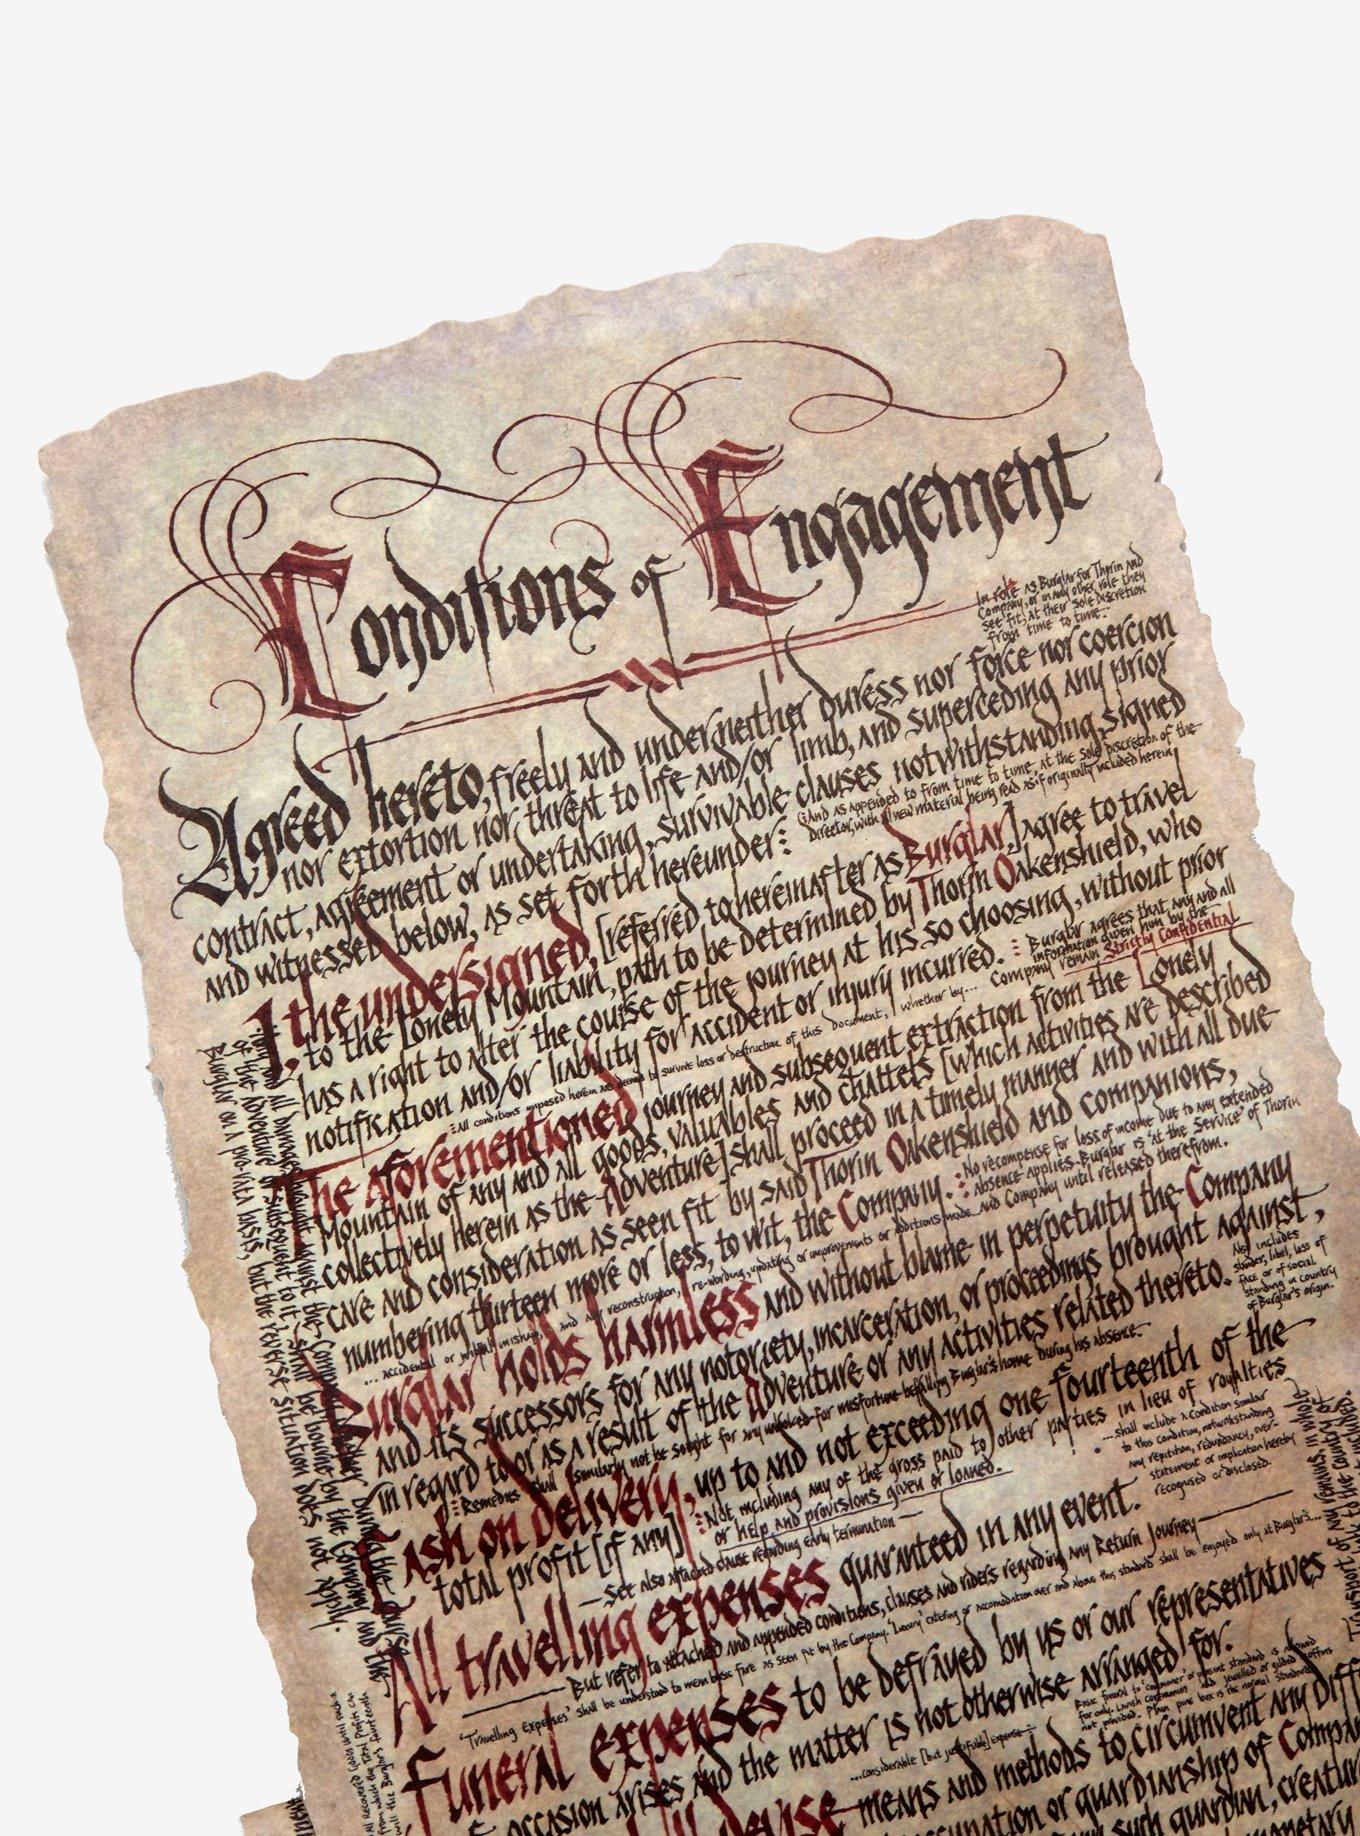 Conditions of Engagement
In role as Burglar for Thorin and
Company, or in any other role they
see fit, at their sole discretion
from time to time.
Agreed hereto, freely and under neither duress nor force nor coercion
nor extortion nor threat to life and/or limb, and superceding any prior
contract, agreement or undertaking, survivable clauses notwithstanding, signed
and witnessed below, as set forth hereunder:
(And as appended to from time to time, at the sole discretion of the
Director, with all new material being read as if originally included herein)
I, the undersigned, [referred to hereinafter as Burglar,] agree to travel
to the Lonely Mountain, path to be determined by Thorin Oakenshield, who
has a right to alter the course of the journey at his so choosing, without prior
notification and/or liability for accident or injury incurred.
Burglar agrees that any and all
information given him by the
Company remain Strictly Confidential
All conditions imposed herein are deemed to survive loss or destruction of this Document, whether by...
The aforementioned journey and subsequent extraction from the Lonely
Mountain of any and all goods, valuables and chattels [which activities are described
collectively herein as the Adventure] shall proceed in a timely manner and with all due
care and consideration as seen fit by said Thorin Oakenshield and companions,
numbering thirteen more or less, to wit, the Company.
No recompense for loss of income due to any extended
absence applies. Burglar is 'at the Service' of Thorin
and Company until released therefrom.
...accidental or wilful mishap, and any reconstruction, re-wording, updating or improvements or additions made
Burglar holds harmless and without blame in perpetuity the Company
and its successors for any notoriety, incarceration, or proceedings brought against,
in regard to or as a result of the Adventure or any activities related thereto.
Also includes
slander, libel, loss of
face or of social
standing in country
of Burglar's origin.
Remedies shall similarly not be sought for any unlooked-for misfortune befalling Burglar's home during his absence.
Cash on delivery, up to and not exceeding one fourteenth of the
total profit [if any]
Not including any of the gross paid to other parties in lieu of royalties
or help and provisions given or loaned.
...shall include a condition similar
to this condition, notwithstanding
any repetition, redundancy, over-
statement or implication hereby
recognised or disclosed.
See also attached clause regarding early termination
All travelling expenses guaranteed in any event.
But refer to attached and appended conditions, clauses and riders regarding any Return Journey
'Travelling Expenses' shall be understood to mean basic fare as seen fit by the Company. 'Luxury' catering or accomodation over and above this standard shall be enjoyed only at Burglar's...
Funeral expenses to be defrayed by us or our representatives
occasion arises and the matter is not otherwise arranged for.
Basic funeral to 'commoner' or peasant standard is allowed
for only. Lavish ceremonies and jewelled or gilded coffins
not provided. Plain pine box is the normal standard.
...considerable [but justifiable] expense
devise means and methods to circumvent any diff
or guardianship of Compan
such guardian, creatur
monetary
Any and all damages brought against the Company
of that Adventure or subsequent to it, shall be bourne by the Company and
Burglar on a pro-rata basis, but the reverse situation does not apply.
all recovered Goods until such a
from which the Total Profits can
will the Burglar's fourteenth
Transport of any remains, in whole